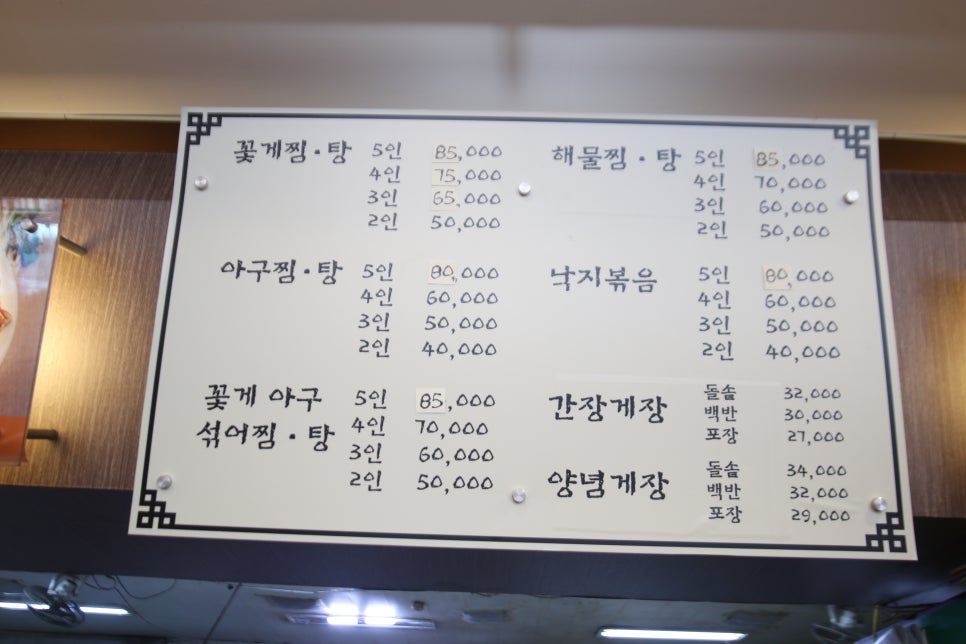 꽃게찜·탕 5인 85,000
4인 75,000
3인 65,000
2인 50,000
아구찜·탕 5인 80,000
4인 60,000
3인 50,000
2인 40,000
꽃게 아구 5인 85,000
섞어찜·탕 4인 70,000
3인 60,000
2인 50,000
해물찜·탕 5인 85,000
4인 70,000
3인 60,000
2인 50,000
낙지볶음 5인 80,000
4인 60,000
3인 50,000
2인 40,000
간장게장 돌솥 32,000
백반 30,000
포장 27,000
양념게장 돌솥 34,000
백반 32,000
포장 29,000